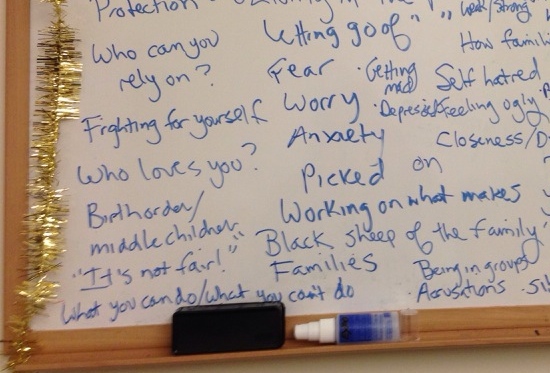 Protection
Who can you
rely on?
Fighting for yourself
Who loves you?
Birthorder/
middle children
"It's not fair!"
What you can do/what you can't do
letting go of " "
Fear
Worry
Anxiety
Picked on
Working on what makes
Black sheep of the family
Families
weak/strong
How famili
Getting
mad
Self hatred
Depressed/Feeling ugly
Closeness/D
Being in groups
Accusations